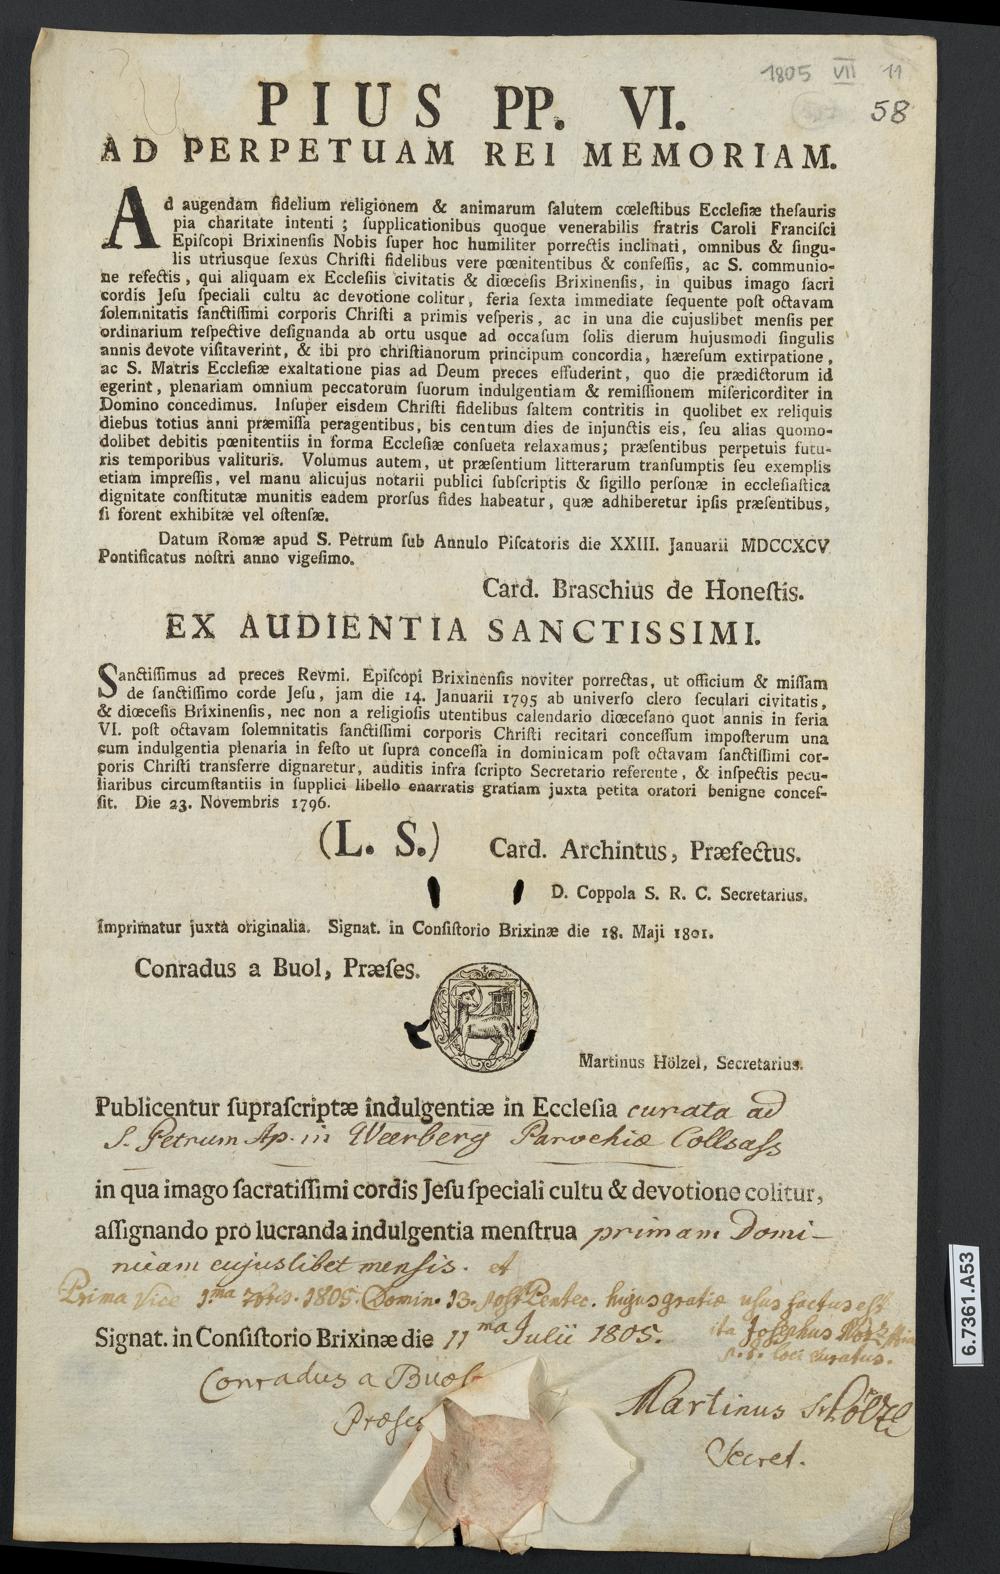 1805 VII 11
58
PIUS PP. VI.
AD PERPETUAM REI MEMORIAM.
Ad augendam fidelium religionem & animarum ſalutem cœleſtibus Eccleſiæ theſauris
pia charitate intenti ; ſupplicationibus quoque venerabilis fratris Caroli Franciſci
Epiſcopi Brixinenſis Nobis ſuper hoc humiliter porrectis inclinati, omnibus & ſingu-
lis utriusque ſexus Chriſti fidelibus vere pœnitentibus & confeſſis, ac S. communio-
ne refectis, qui aliquam ex Eccleſiis civitatis & diœceſis Brixinenſis, in quibus imago ſacri
cordis Jeſu ſpeciali cultu ac devotione colitur, feria ſexta immediate ſequente poſt octavam
ſolemnitatis ſanctiſſimi corporis Chriſti a primis veſperis, ac in una die cujuslibet menſis per
ordinarium reſpective deſignanda ab ortu usque ad occaſum ſolis dierum hujusmodi ſingulis
annis devote viſitaverint, & ibi pro chriſtianorum principum concordia, hæreſum extirpatione,
ac S. Matris Eccleſiæ exaltatione pias ad Deum preces effuderint, quo die prædictorum id
egerint, plenariam omnium peccatorum ſuorum indulgentiam & remiſſionem miſericorditer in
Domino concedimus. Inſuper eisdem Chriſti fidelibus ſaltem contritis in quolibet ex reliquis
diebus totius anni præmiſſa peragentibus, bis centum dies de injunctis eis, ſeu alias quomo-
dolibet debitis pœnitentiis in forma Eccleſiæ conſueta relaxamus; præſentibus perpetuis futu-
ris temporibus valituris. Volumus autem, ut præſentium litterarum tranſumptis ſeu exemplis
etiam impreſſis, vel manu alicujus notarii publici ſubſcriptis & ſigillo perſonæ in eccleſiaſtica
dignitate conſtitutæ munitis eadem prorſus fides habeatur, quæ adhiberetur ipſis præſentibus,
ſi forent exhibitæ vel oſtenſæ.
Datum Romæ apud S. Petrum ſub Annulo Piſcatoris die XXIII. Januarii MDCCXCV
Pontificatus noſtri anno vigeſimo.
Card. Braschius de Honeſtis.
EX AUDIENTIA SANCTISSIMI.
Sanctiſſimus ad preces Revmi. Epiſcopi Brixinenſis noviter porrectas, ut officium & miſſam
de ſanctiſſimo corde Jeſu, jam die 14. Januarii 1795 ab univerſo clero ſeculari civitatis,
& diœceſis Brixinenſis, nec non a religioſis utentibus calendario diœceſano quot annis in feria
VI. poſt octavam ſolemnitatis ſanctiſſimi corporis Chriſti recitari conceſſum impoſterum una
cum indulgentia plenaria in feſto ut ſupra conceſſa in dominicam poſt octavam ſanctiſſimi cor-
poris Chriſti transferre dignaretur, auditis infra ſcripto Secretario referente, & inſpectis pecu-
liaribus circumſtantiis in ſupplici libello enarratis gratiam juxta petita oratori benigne conceſ-
ſit. Die 23. Novembris 1796.
(L. S.) Card. Archintus, Præfectus.
D. Coppola S. R. C. Secretarius.
Imprimatur juxta originalia. Signat. in Conſiſtorio Brixinæ die 18. Maji 1801.
Conradus a Buol, Præſes.
Martinus Hölzel, Secretarius.
Publicentur ſupraſcriptæ indulgentiæ in Eccleſia curata ad
S. Petrum Ap. in Weerberg Parochiæ Collsaſs
in qua imago ſacratiſſimi cordis Jeſu ſpeciali cultu & devotione colitur,
aſſignando pro lucranda indulgentia menſtrua primam Domi-
nicam cujuslibet mensis. et
Prima vice 1.ma 7bris. 1805. Domin. 13. post Pentec. hujus gratiæ usus factus est
Signat. in Conſiſtorio Brixinæ die 11ma Julii 1805. ita Josephus
loci curatus.
Conradus a Buol
Præses
Martinus Hölzel
Secret.
6.7361.A53